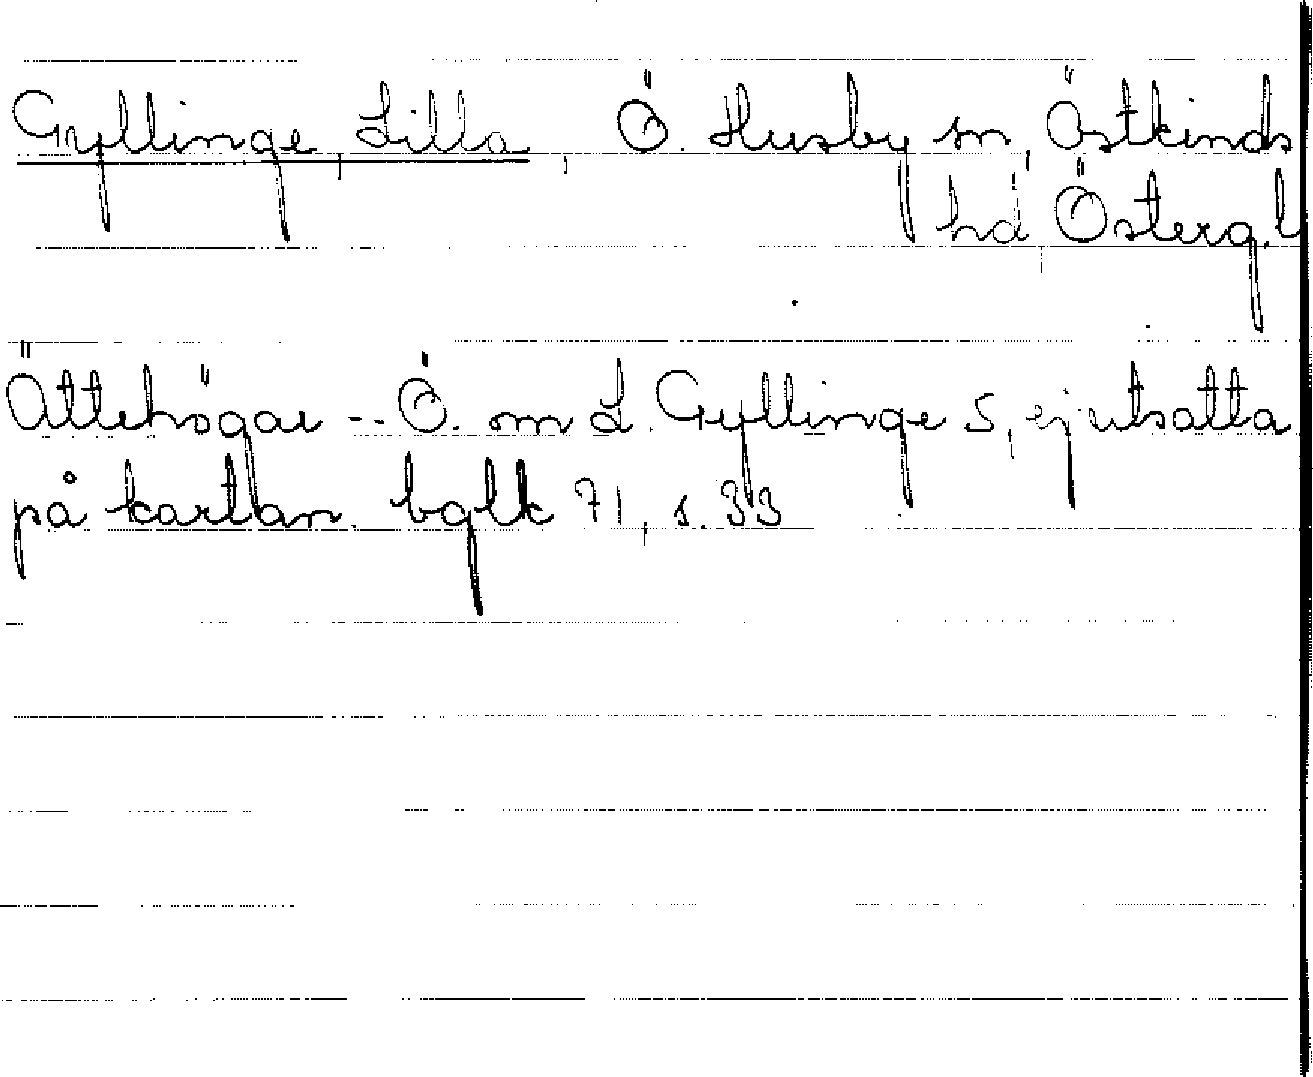 Gyllinge, Lilla, Ö. Husby sn, Östkinds
hd, Österg. l
Ättehögar -- Ö. om L. Gyllinge S, ej utsatta
på kartan. bglk 71, s. 33